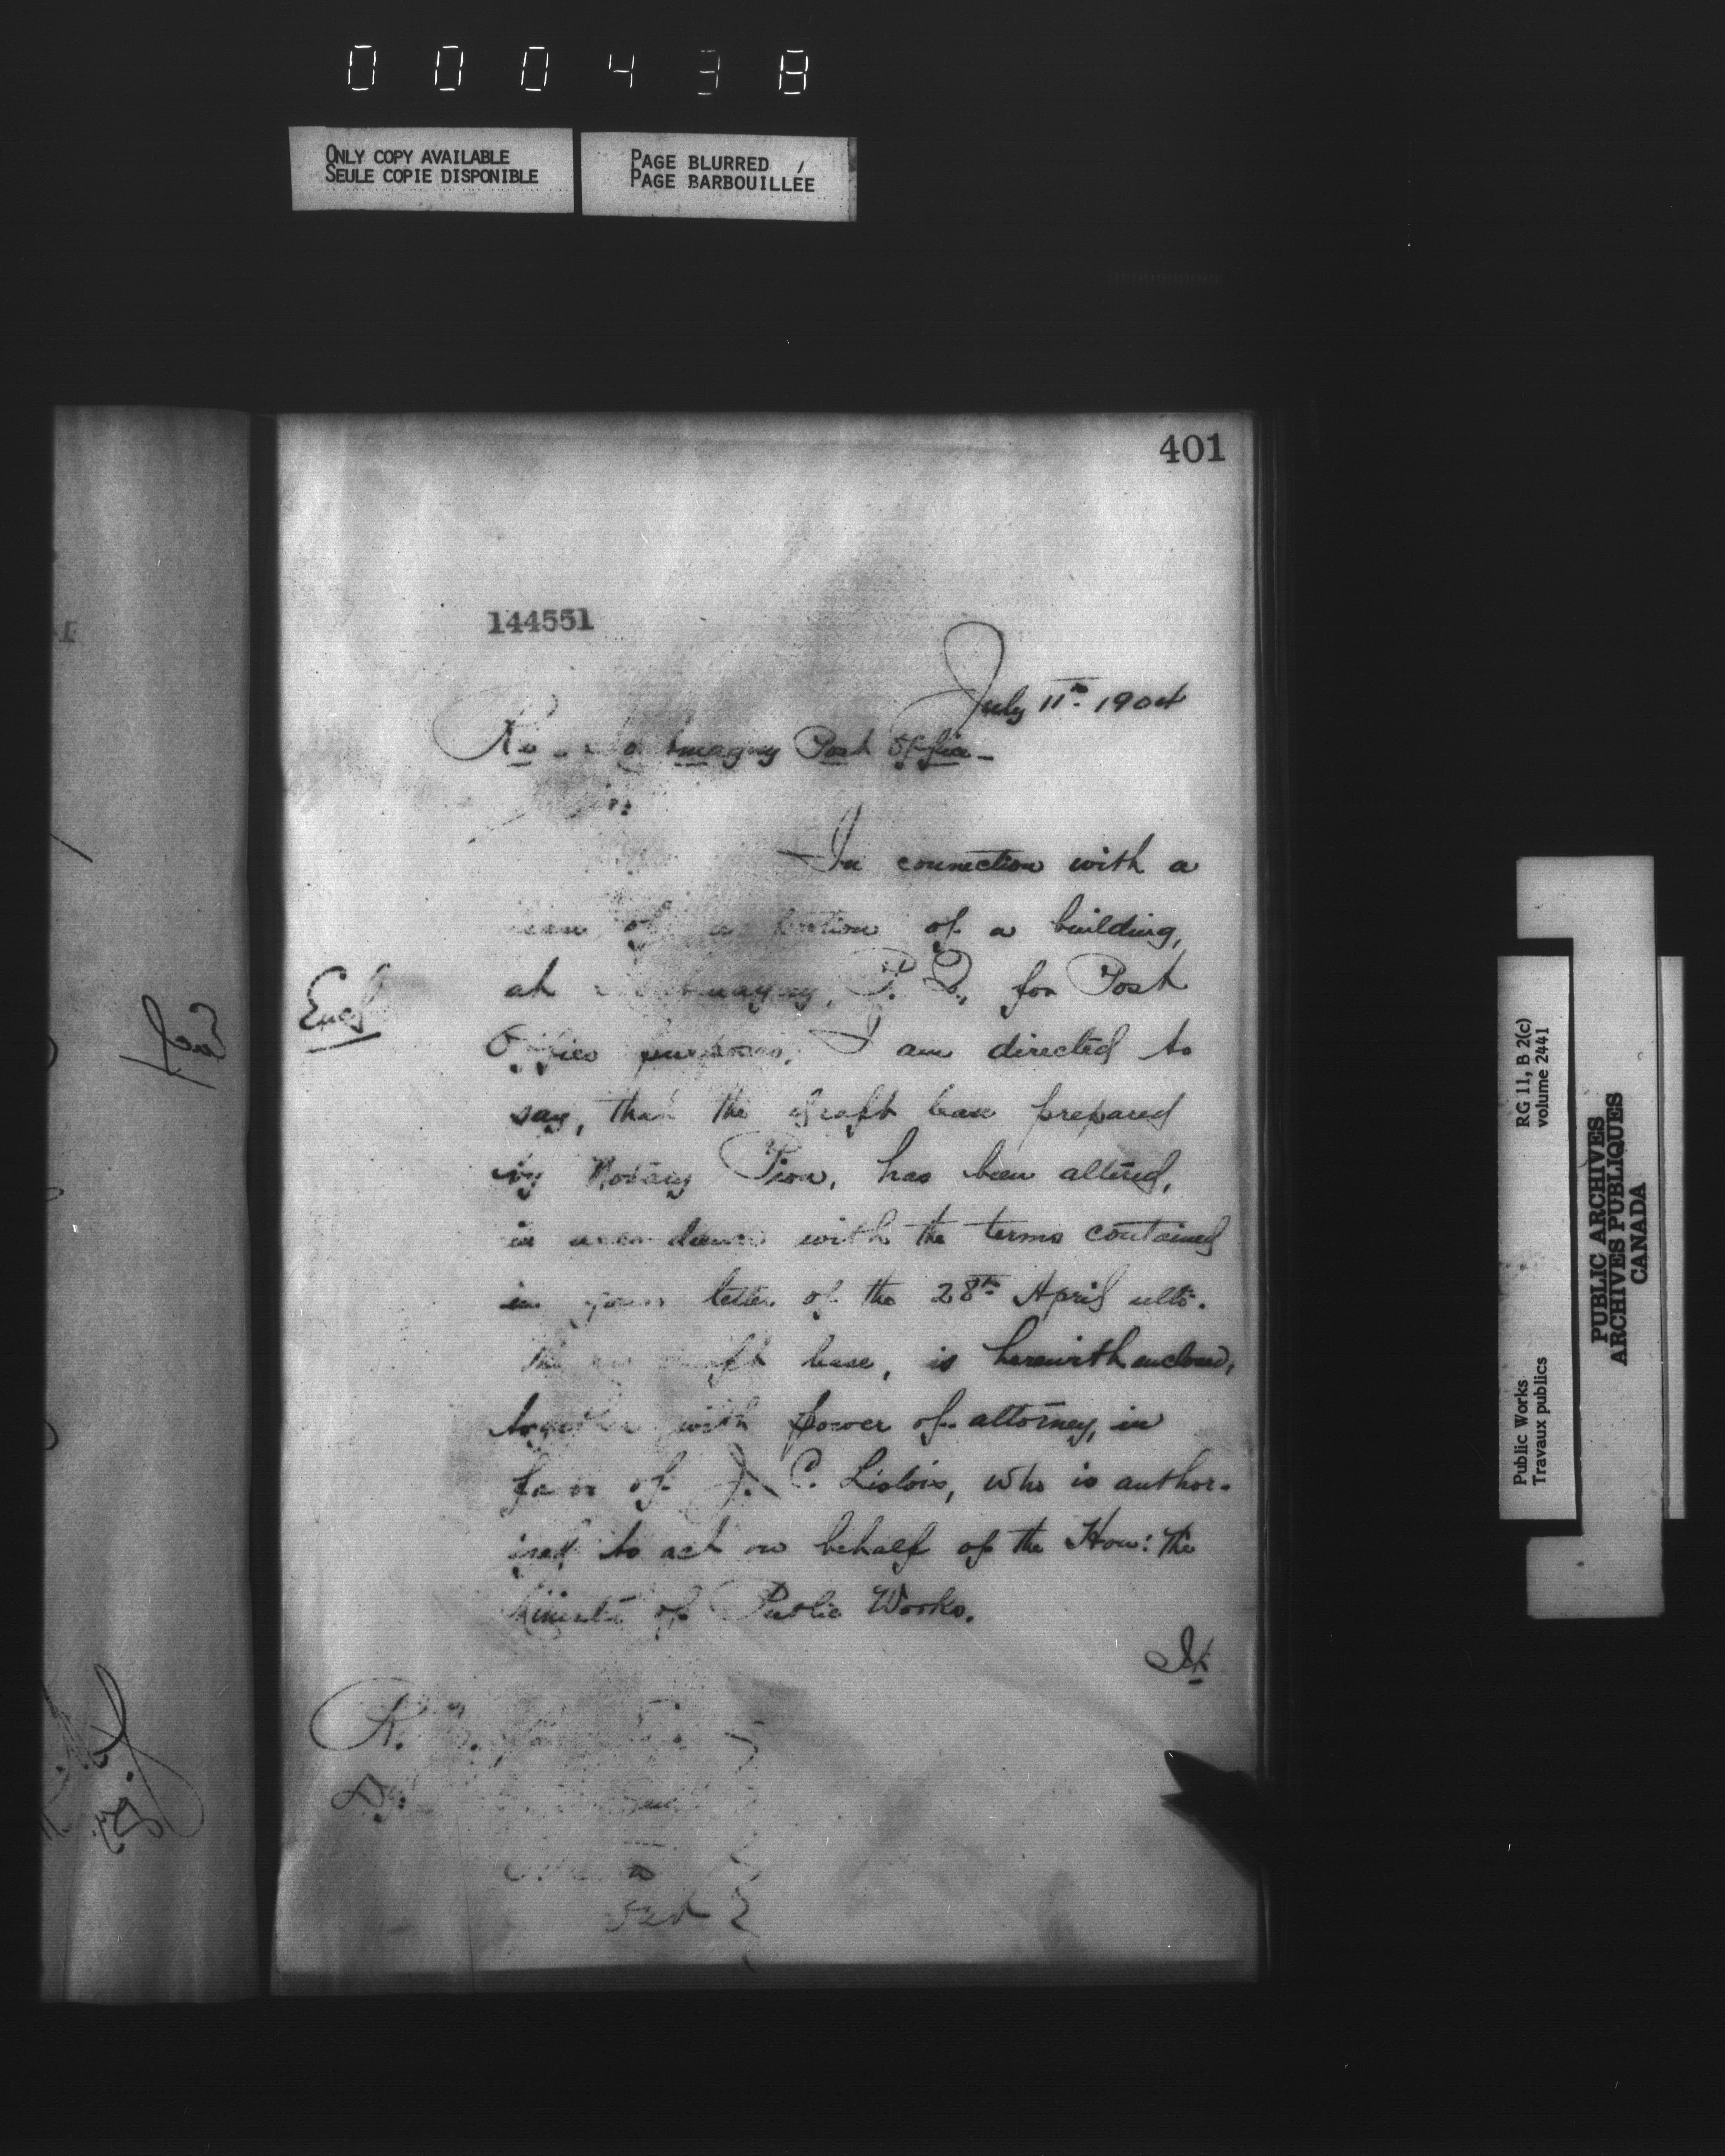 000438
ONLY COPY AVAILABLE
SEULE COPIE DISPONIBLE
PAGE BLURRED
PAGE BARBOUILLÉE
401
144551
July 11th 1904
Re Montmagny Post Office
Sir:
In connection with a
lease of a portion of a building,
at Montmagny, P. Q., for Post
Encl
Office purposes, I am directed to
say, that the draft lease prepared
by Notary Pion, has been altered,
in accordance with the terms contained
in your letter of the 28th April ulto.
The draft lease, is herewith enclosed,
together with power of attorney, in
favor of J. C. Lislois, who is author-
ized to act on behalf of the Hon: the
Minister of Public Works.
It
RG 11, B 2(c)
volume 2441
Public Works
Travaux publics
PUBLIC ARCHIVES
ARCHIVES PUBLIQUES
CANADA